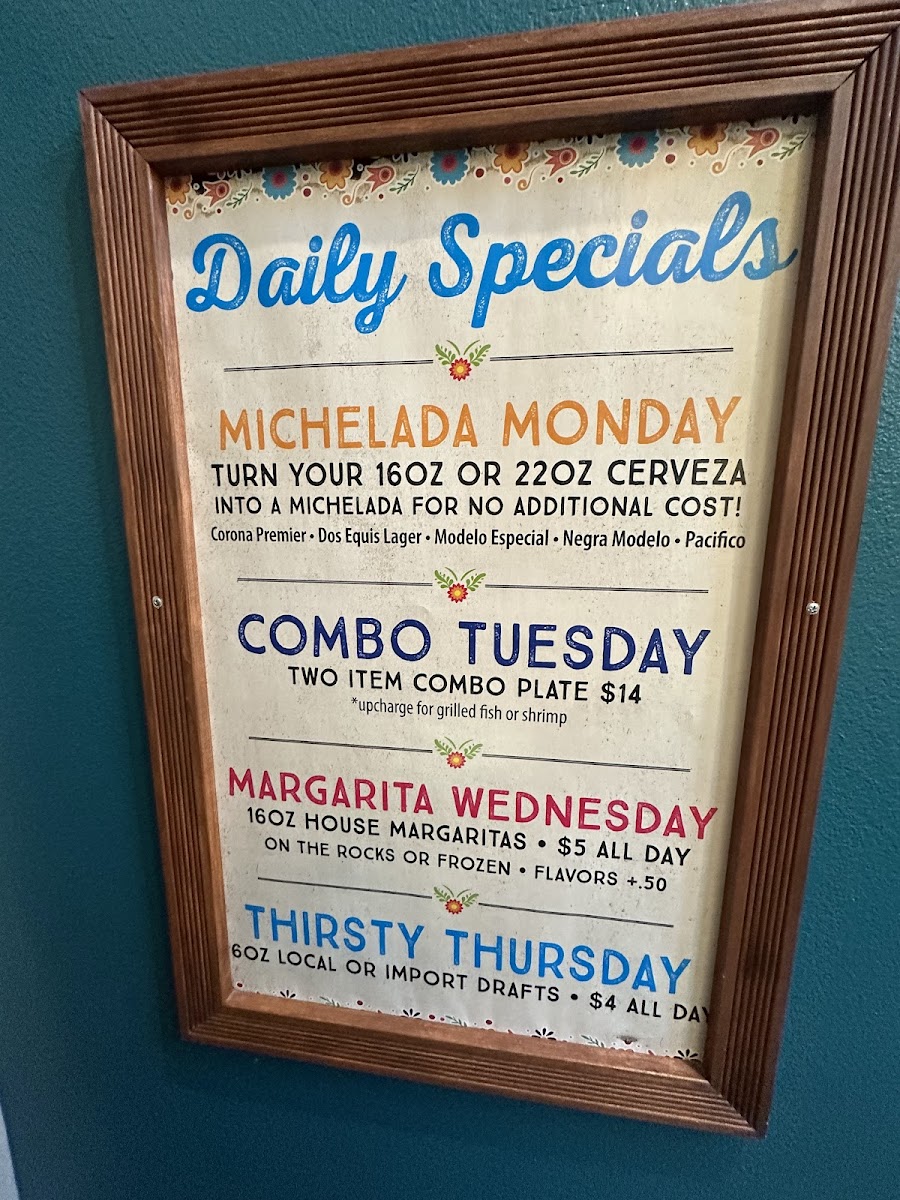 Daily Specials
MICHELADA MONDAY
TURN YOUR 16OZ OR 22OZ CERVEZA
INTO A MICHELADA FOR NO ADDITIONAL COST!
Corona Premier • Dos Equis Lager • Modelo Especial • Negra Modelo • Pacifico
COMBO TUESDAY
TWO ITEM COMBO PLATE $14
*upcharge for grilled fish or shrimp
MARGARITA WEDNESDAY
16OZ HOUSE MARGARITAS • $5 ALL DAY
ON THE ROCKS OR FROZEN • FLAVORS +.50
THIRSTY THURSDAY
6OZ LOCAL OR IMPORT DRAFTS • $4 ALL DAY